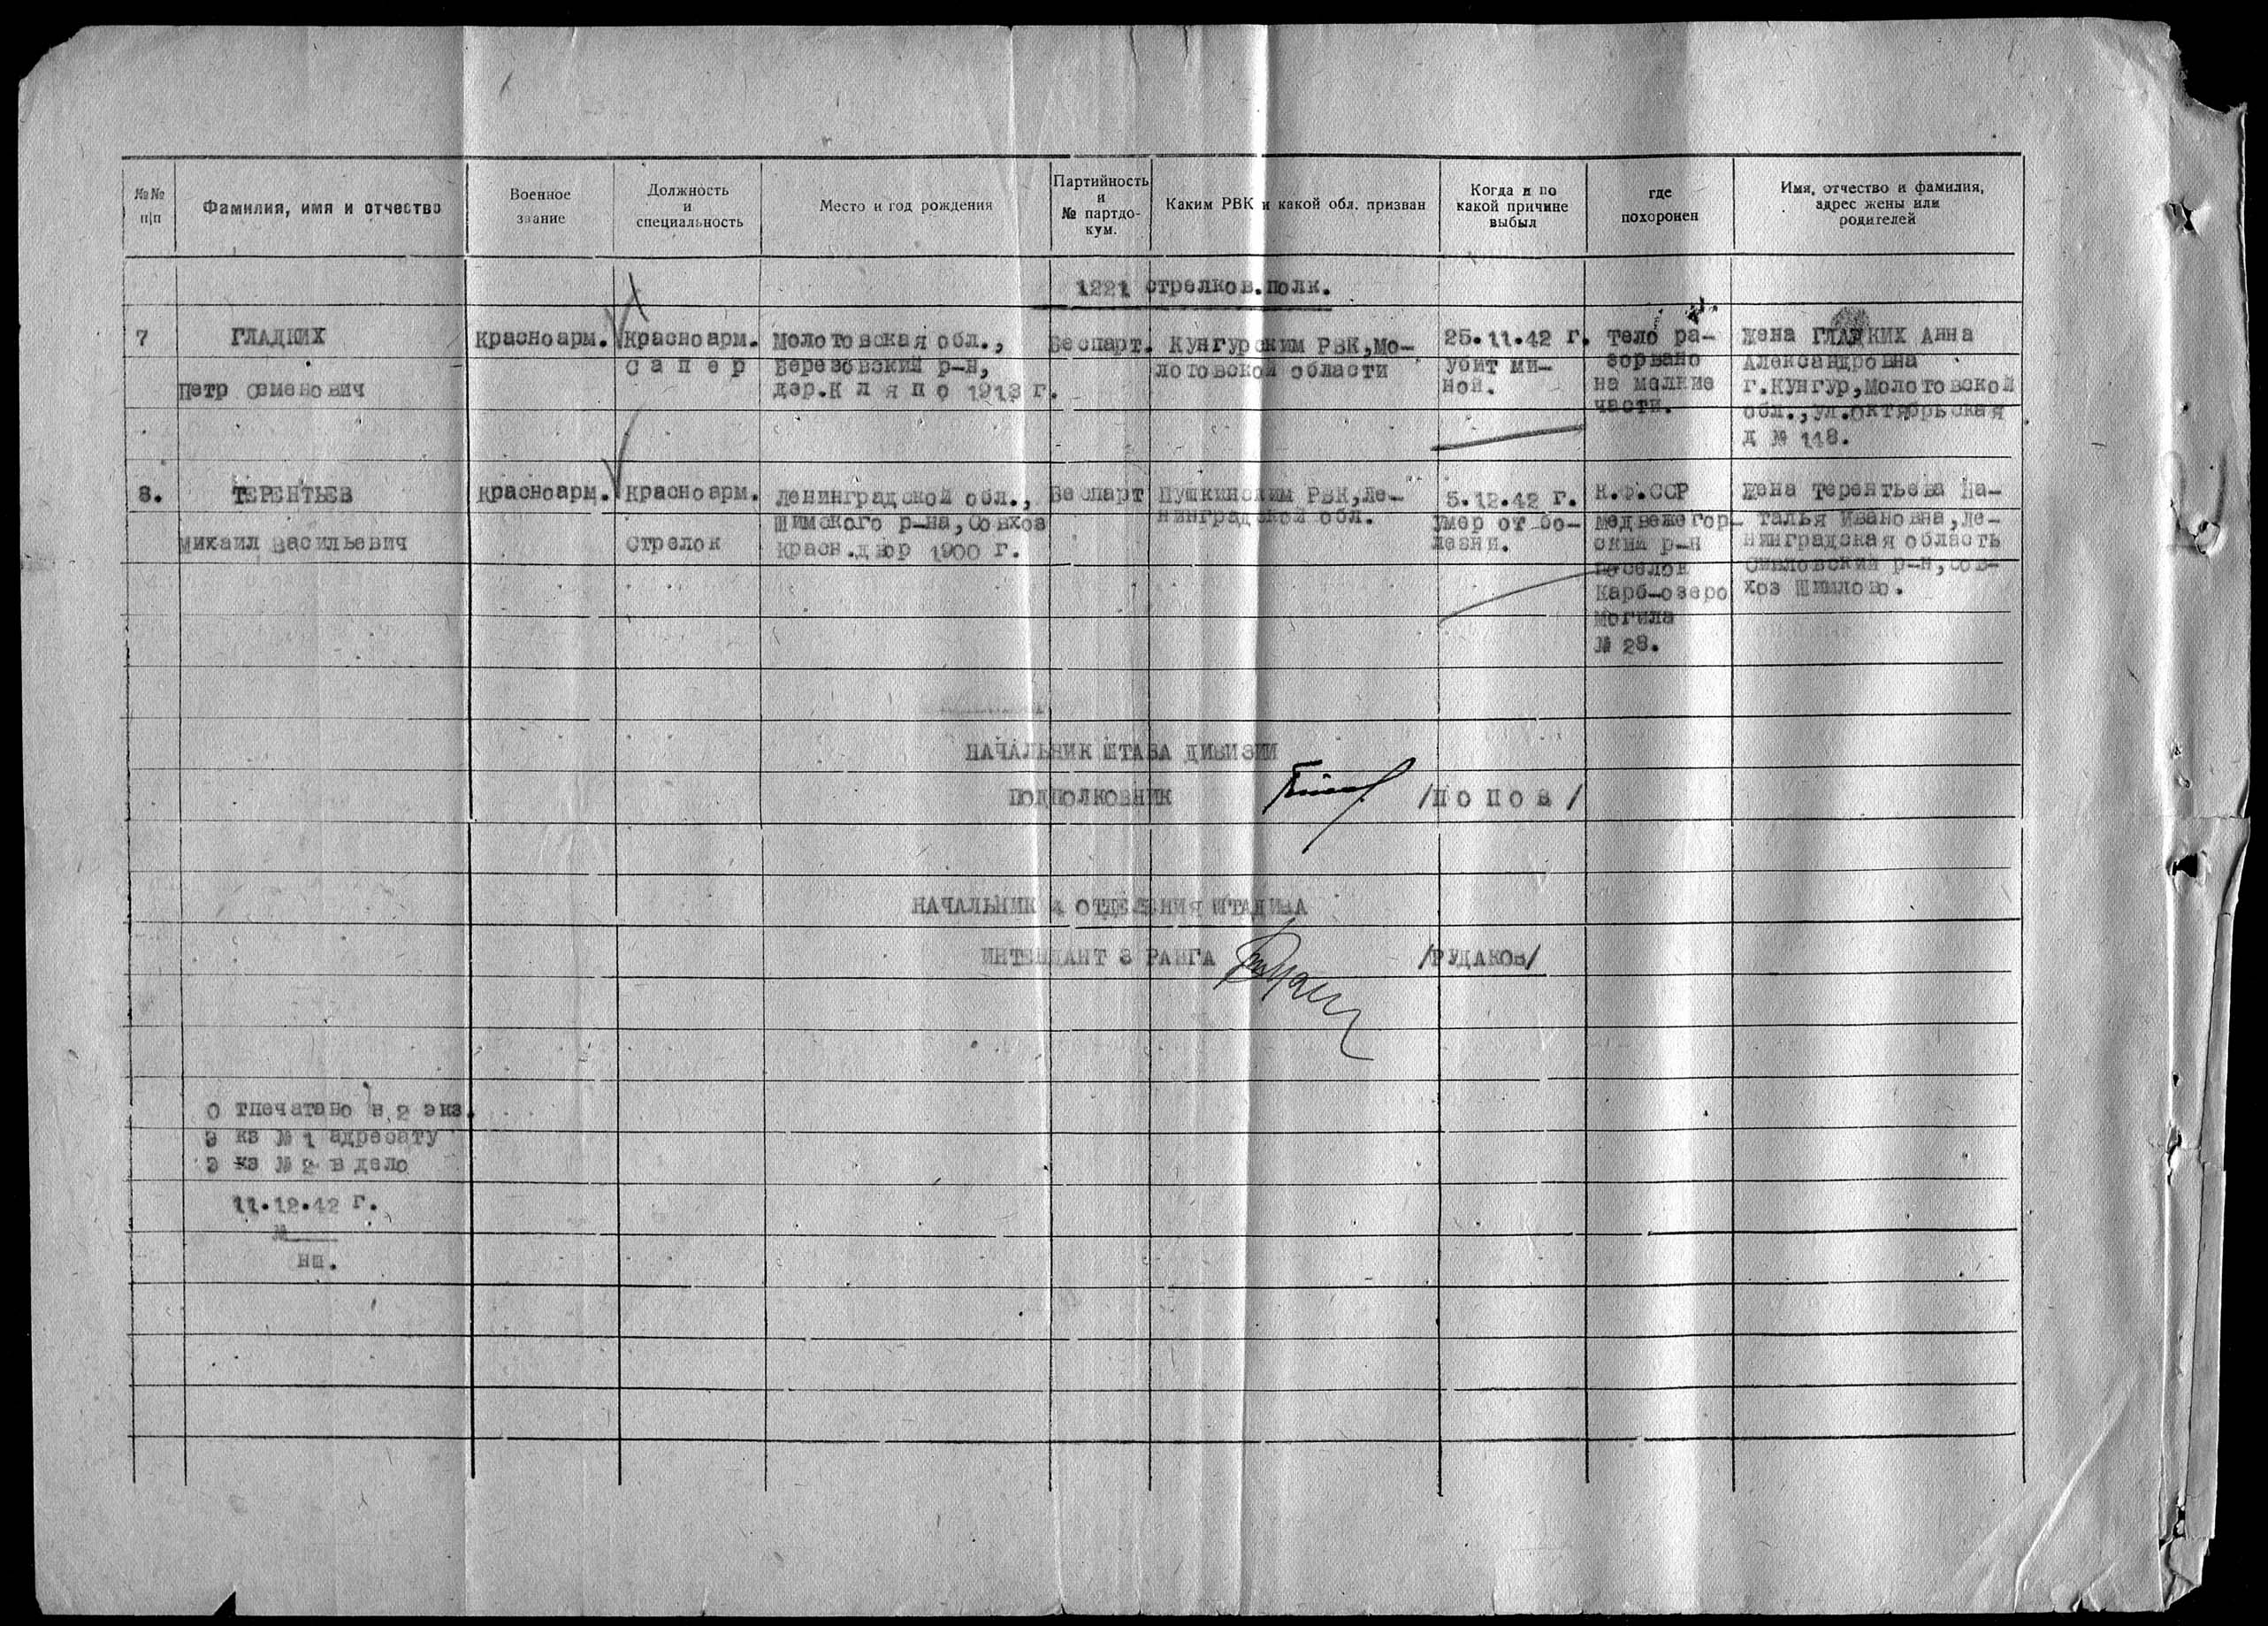 №№ п|п
Фамилия, имя и отчество
Военное звание
Должность и специальность
Место и год рождения
Партийность и № партдо-кум.
Каким РВК и какой обл. призван
Когда и по какой причине выбыл
где похоронен
Имя, отчество и фамилия, адрес жены или родителей
1221 стрелков.полк.
7
ГЛАДКИХ
Петр Семенович
Красноарм.
Красноарм.
С а п е р
Молотовская обл.,
Березовский р-н,
дер.К л я п о 1913 г.
Беспарт.
Кунгурским РВК,Мо-
лотовской области
25.11.42 г.
убит ми-
ной.
Тело ра-
зорвано
на мелкие
части.
Жена ГЛАДКИХ Анна
Александровна
г.Кунгур,Молотовской
обл.,ул.Октябрьская
д № 118.
8.
ТЕРЕНТЬЕВ
Михаил Васильевич
Красноарм.
Красноарм.
Стрелок
Ленинградской обл.,
Шимского р-на,Совхоз
Красн.двор 1900 г.
Беспарт
Пушкинским РВК,Ле-
нинградской обл.
5.12.42 г.
Умер от бо-
лезни.
К.Ф.ССР
Медвежегор-
ский р-н
поселок
Карб-озеро
Могила
№ 28.
Жена Терентьева На-
талья Ивановна,Ле-
нинградская область
р-н,сов-
хоз Шишлово.
НАЧАЛЬНИК ШТАБА ДИВИЗИИ
ПОДПОЛКОВНИК /П О П О В/
НАЧАЛЬНИК 4 ОТДЕЛЕНИЯ ШТАДИВА
ИНТЕНДАНТ 3 РАНГА /РУДАКОВ/
О тпечатано в 2 экз.
Э кз № 1 адресату
Э кз № 2 в дело
11.12.42 г.
№
нш.